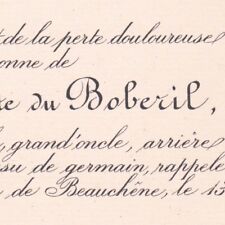 t de la perte douloureuse
onne de
te du Boberil,
, grand'oncle, arrière
su de germain, rappelé
de Beauchêne, le 13